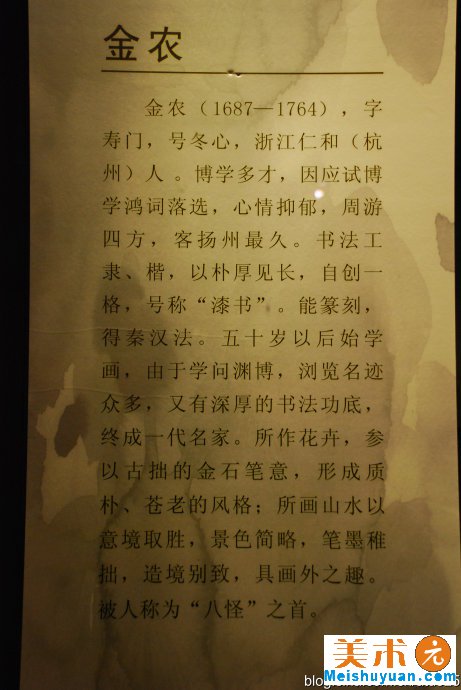 金农
金农（1687—1764），字
寿门，号冬心，浙江仁和（杭
州）人。博学多才，因应试博
学鸿词落选，心情抑郁，周游
四方，客扬州最久。书法工
隶、楷，以朴厚见长，自创一
格，号称“漆书”。能篆刻，
得秦汉法。五十岁以后始学
画，由于学问渊博，浏览名迹
众多，又有深厚的书法功底，
终成一代名家。所作花卉，参
以古拙的金石笔意，形成质
朴、苍老的风格；所画山水以
意境取胜，景色简略，笔墨稚
拙，造境别致，具画外之趣。
被人称为“八怪”之首。
美术元
Meishuyuan.com